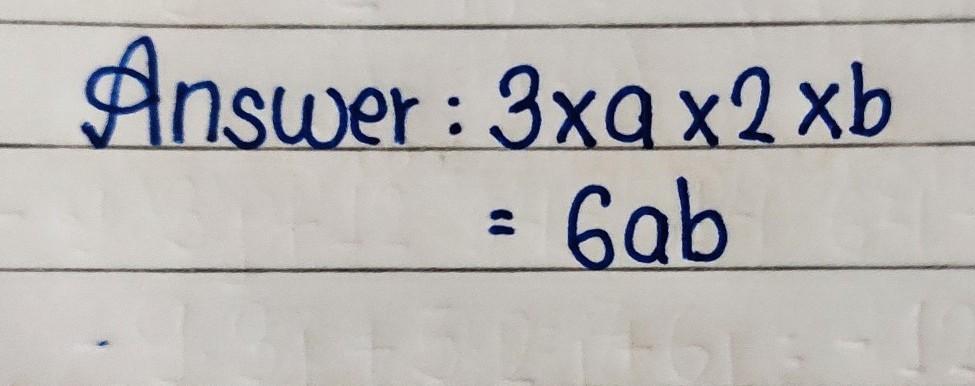 Answer : 3xa x2 xb
= 6ab